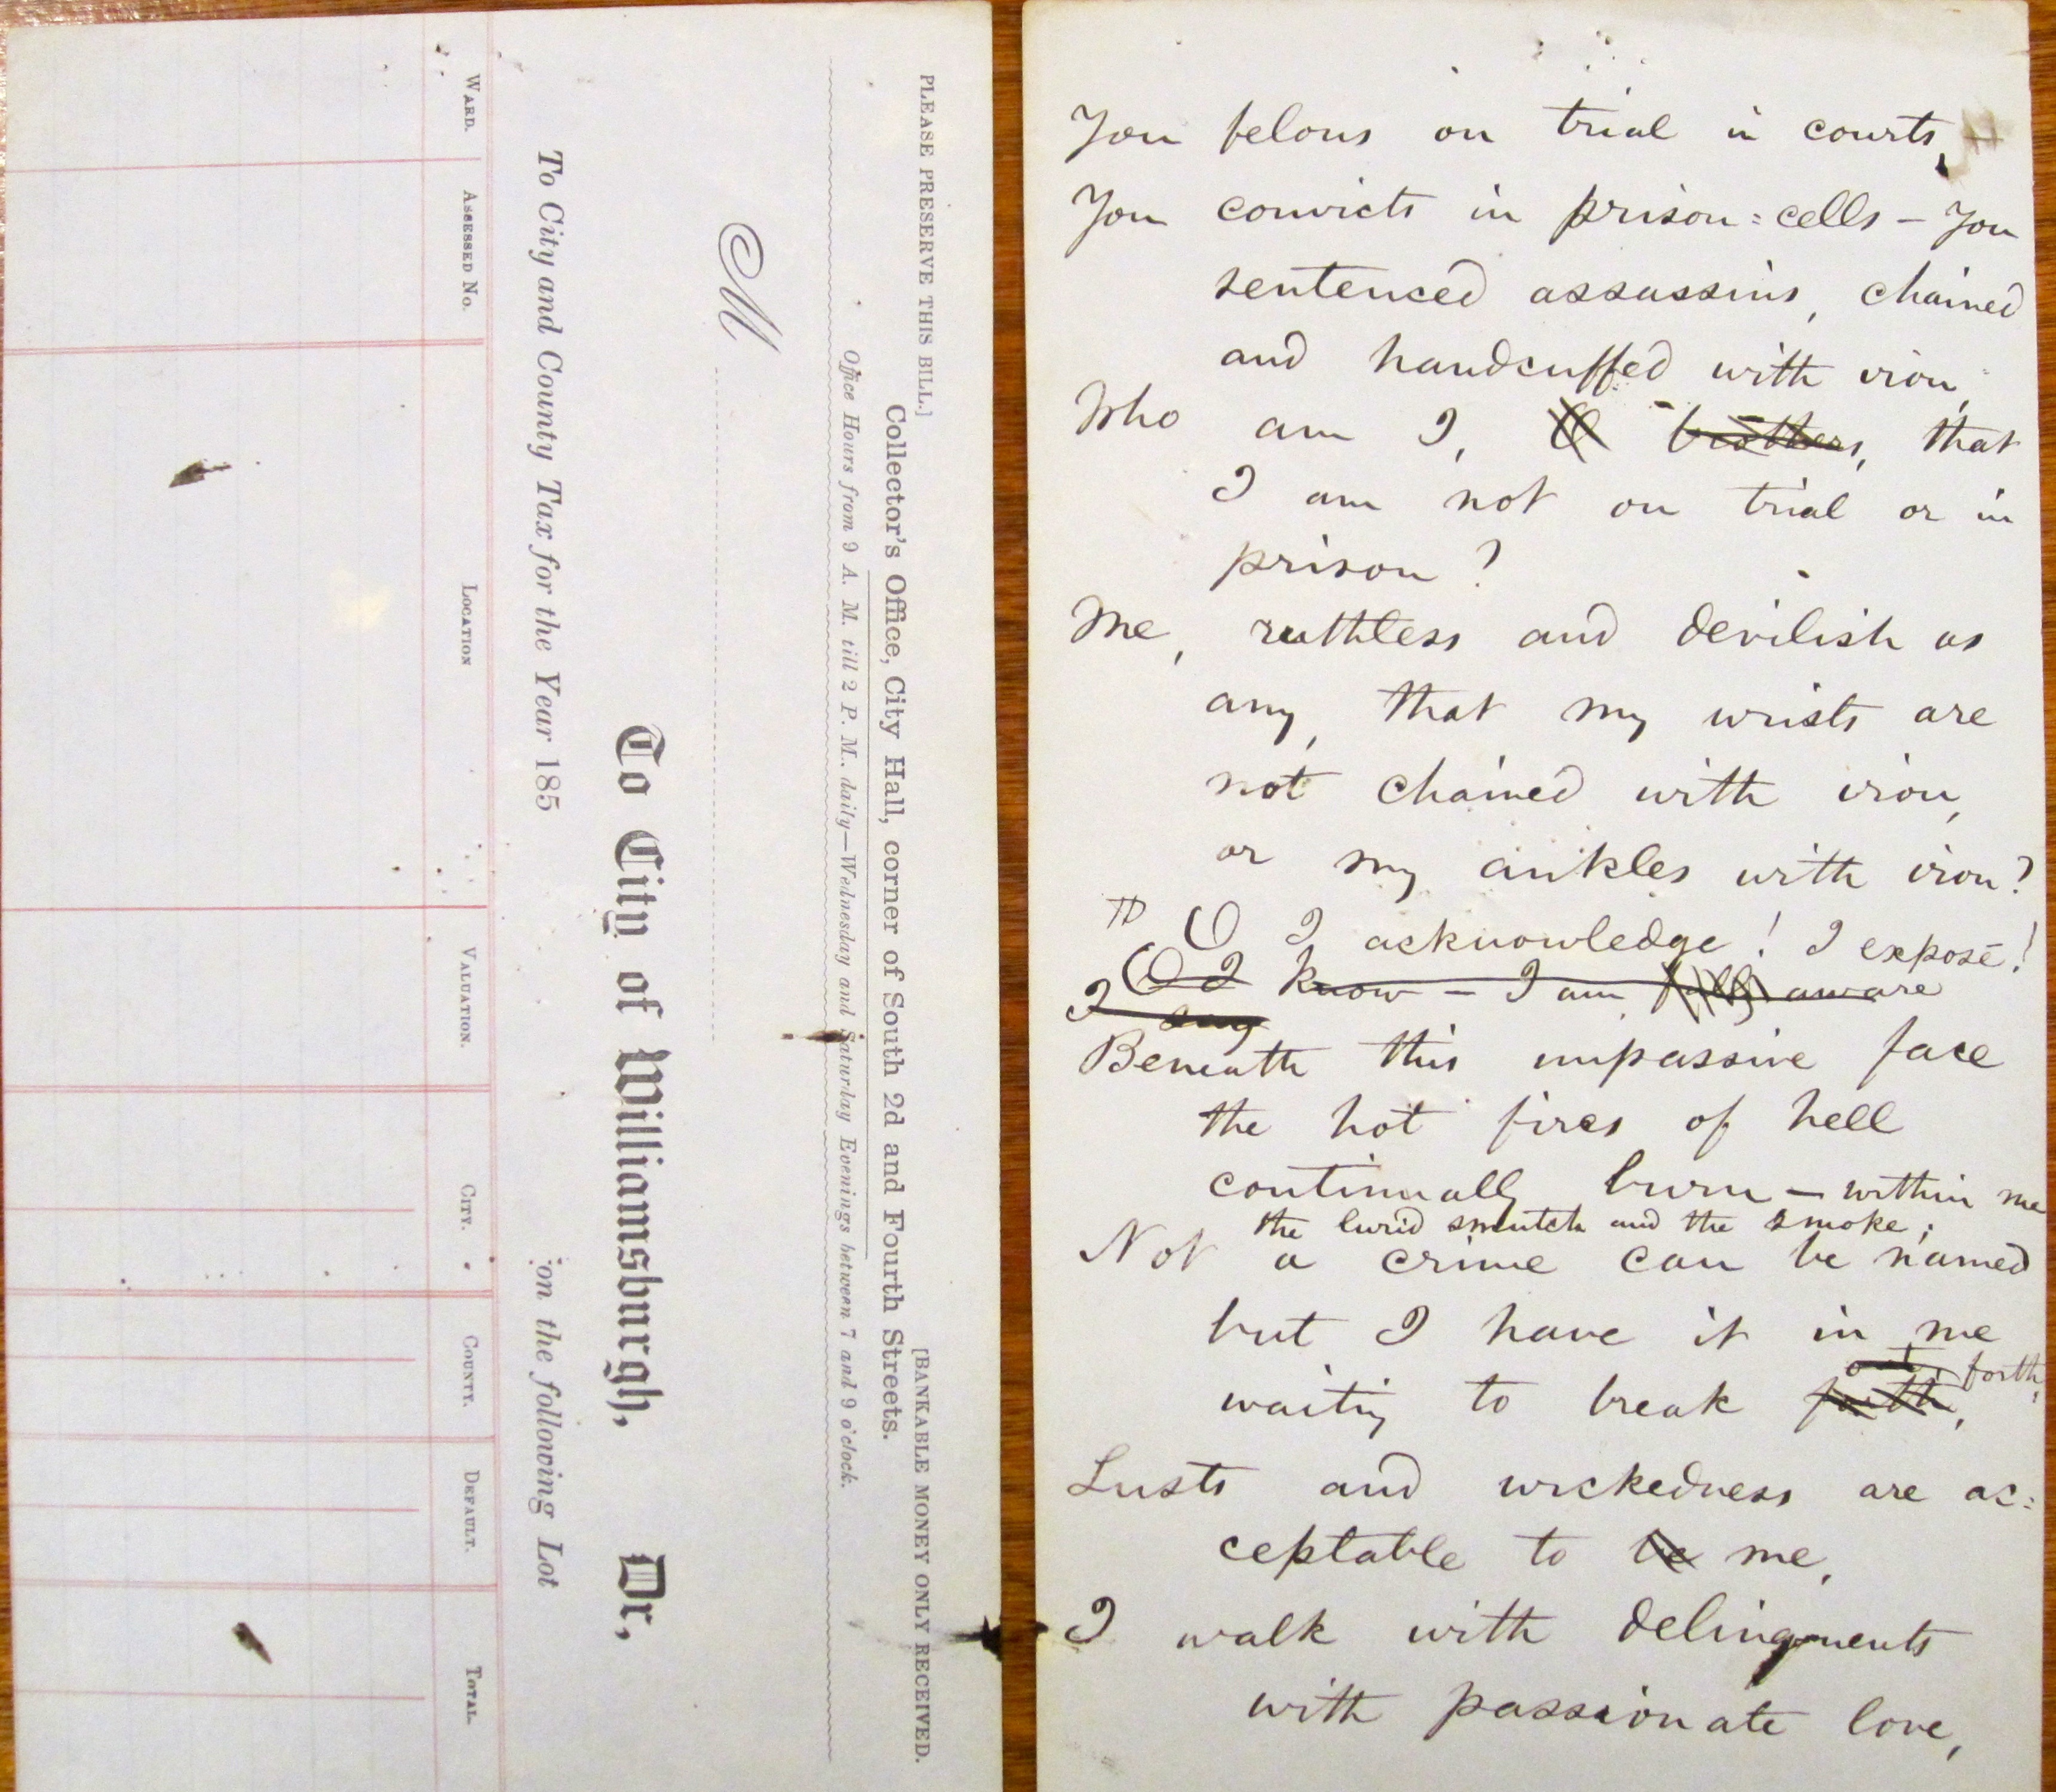 PLEASE PRESERVE THIS BILL.] [BANKABLE MONEY ONLY RECEIVED.
Collector's Office, City Hall, corner of South 2d and Fourth Streets.
Office Hours from 9 A. M. till 2 P. M., daily—Wednesday and Saturday Evenings between 7 and 9 o'clock.
M
To City of Williamsburgh, Dr,
To City and County Tax for the Year 185 on the following Lot
WARD. ASSESSED No. LOCATION VALUATION. CITY. COUNTY. DEFAULT. TOTAL.
You felons on trial in courts,
You convicts in prison=cells – you
sentenced assassins, chained
and handcuffed with iron,
Who am I, O brothers, that
I am not on trial or in
prison?
Me, ruthless and devilish as
any, that my wrists are
not chained with iron,
or my ankles with iron?
O I acknowledge! I exposé!
O I know – I am fully aware
I say
Beneath this impassive face
the hot fires of hell
continually burn – within me
the lurid smutch and the smoke;
Not a crime can be named
but I have it in me
out, forth;
waiting to break forth,
Lusts and wickedness are ac=
ceptable to be me,
I walk with delinquents
with passionate love,